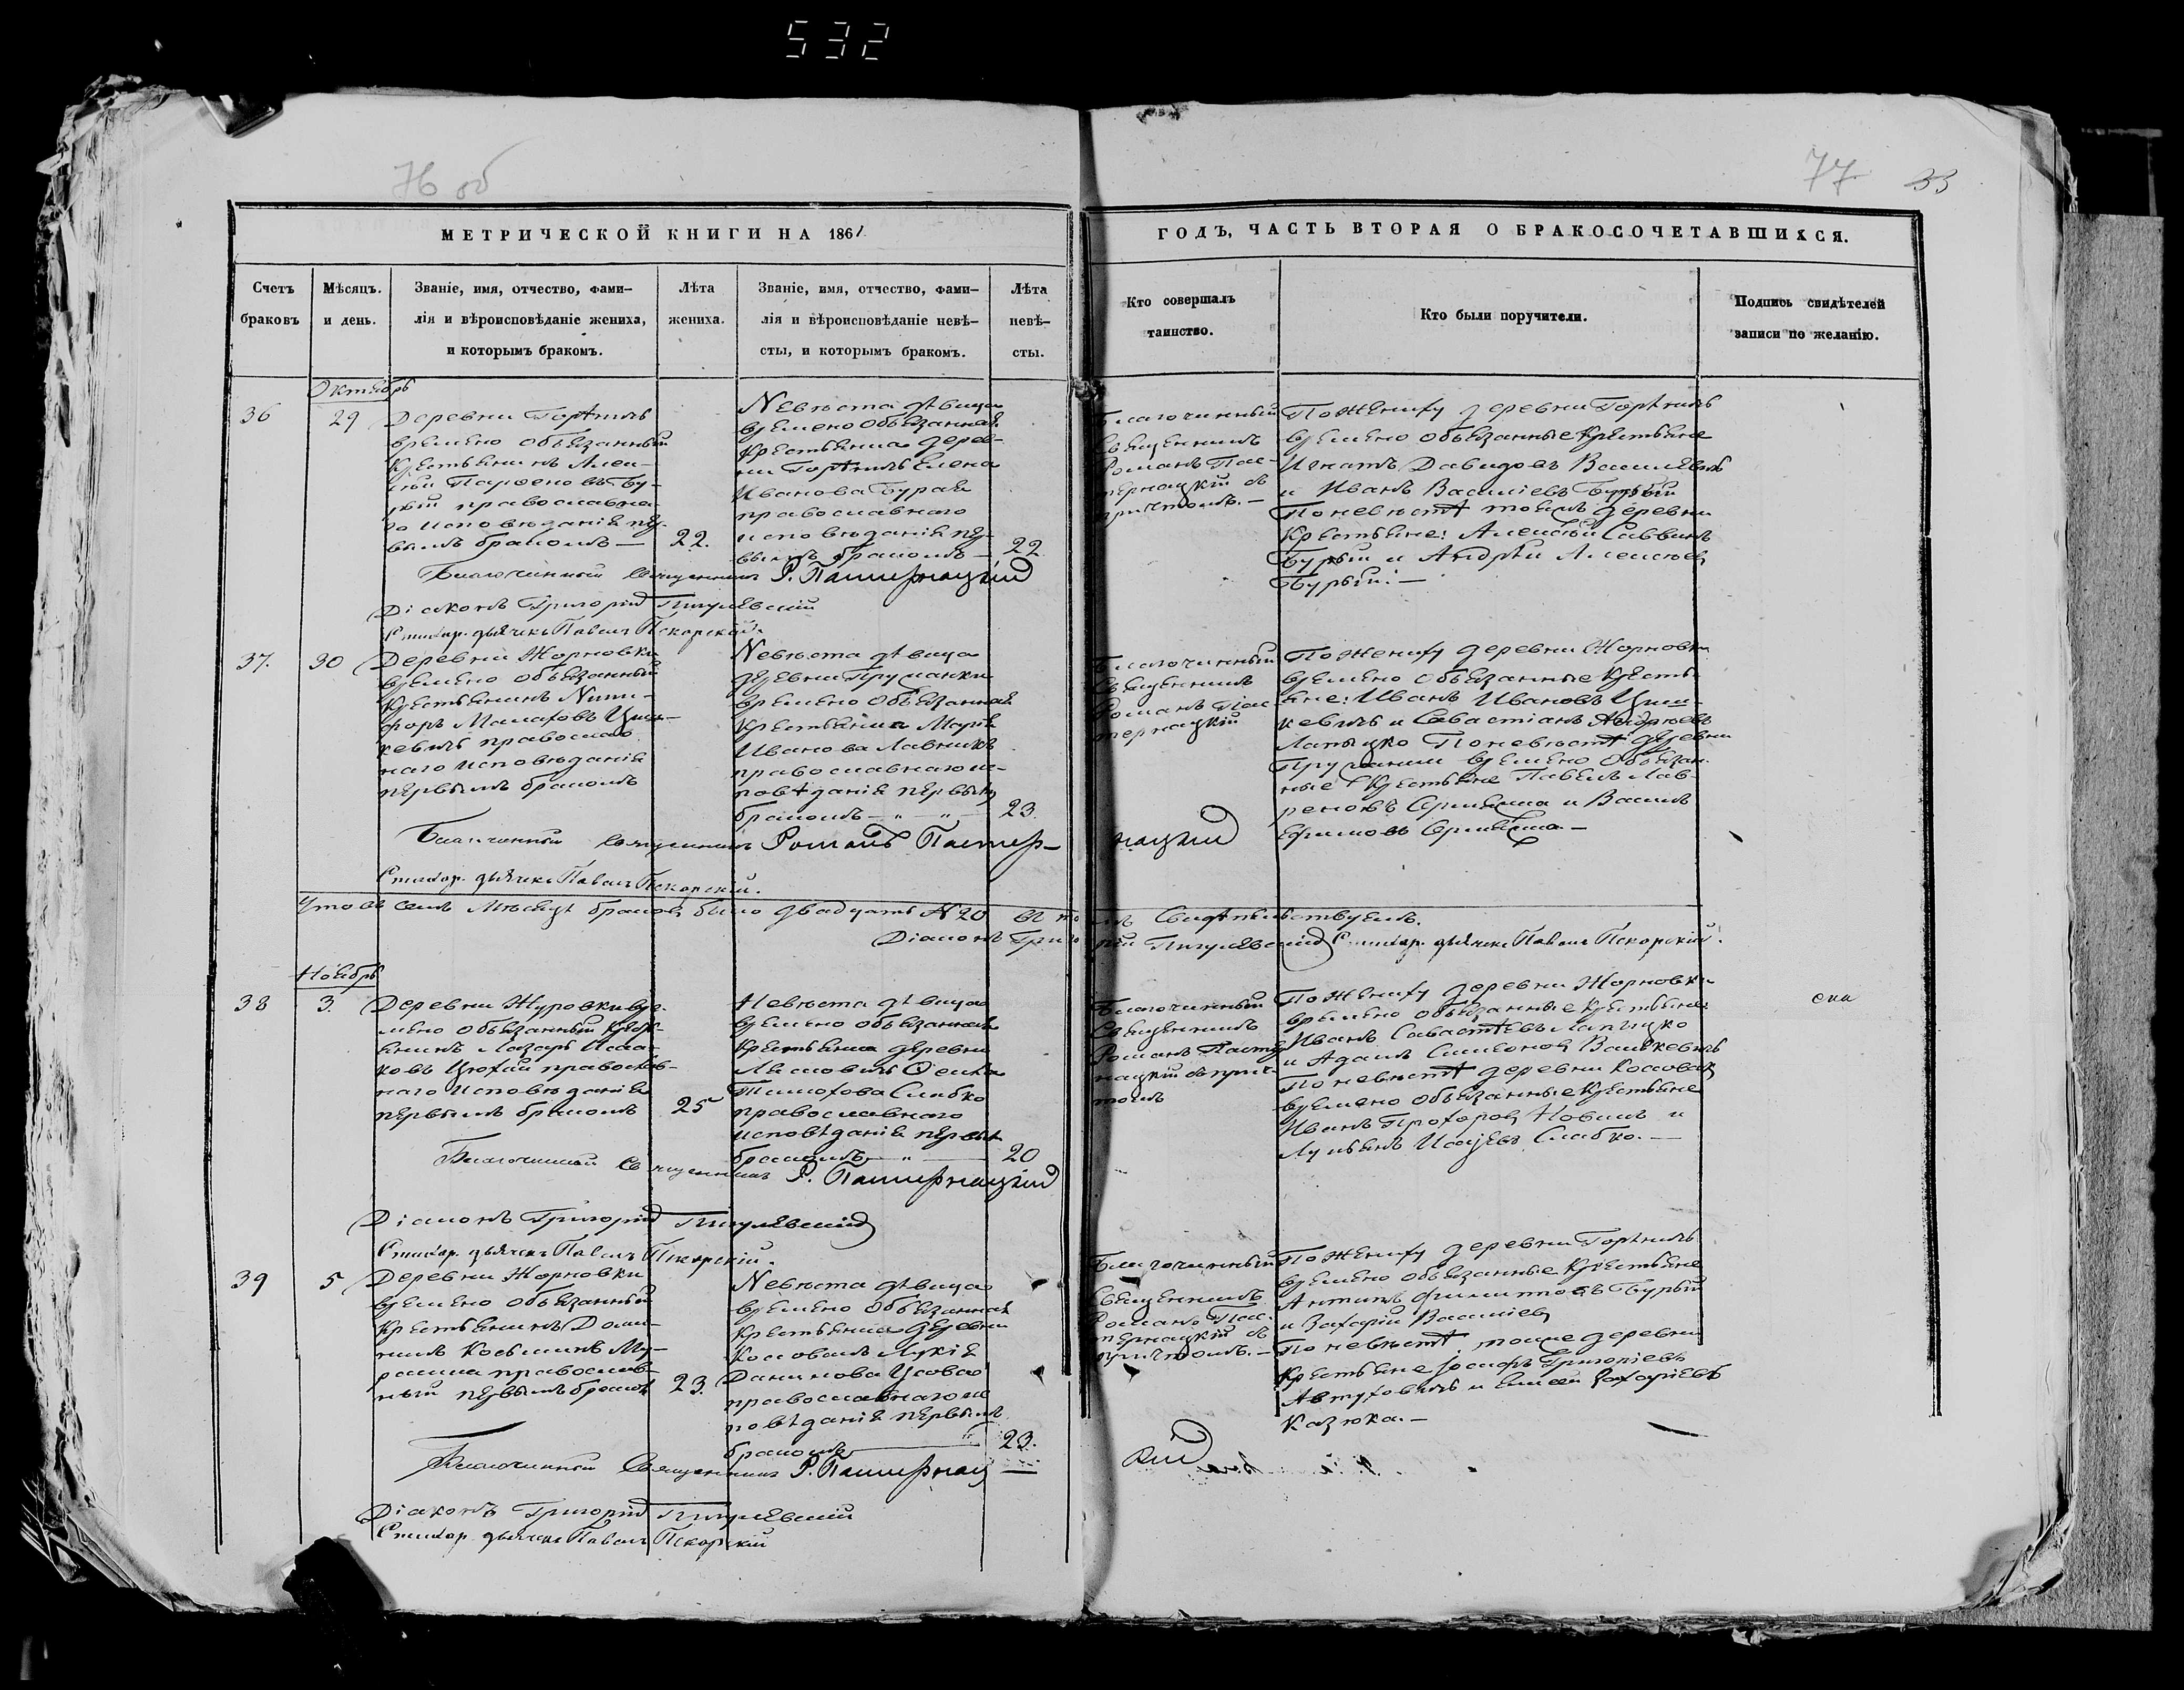 532
76 об
77 33
МЕТРИЧЕСКОЙ КНИГИ НА 1861
ГОДЪ, ЧАСТЬ ВТОРАЯ О БРАКОСОЧЕТАВШИХСЯ.
Счетъ
браковъ
Мѣсяцъ.
и день.
Званіе, имя, отчество, фами-
лія и вѣроисповѣданіе жениха,
и которымъ бракомъ.
Лѣта
жениха.
Званіе, имя, отчество, фами-
лія и вѣроисповѣданіе невѣ-
сты, и которымъ бракомъ.
Лѣта
невѣ-
сты.
Кто совершалъ
таинство.
Кто были поручители.
Подпись свидѣтелей
записи по желанію.
Октябрь
36
29
Деревни
временно обязанный
Крестьянинъ Алек-
сѣй Парѳеновъ Бу-
рый православна-
го исповѣданія пер-
вымъ бракомъ —
22.
Невѣста дѣвица
временно обязанная
Крестьянка дерев-
ни Елена
Иванова Бурая
православнаго
исповѣданія пер-
вымъ бракомъ —
22
Благочинный
Священникъ
Романъ Пас-
тернацкій съ
причтомъ. —
По Жениху деревни
временно обязанные Крестьяне
Игнатъ Давидовъ
и Иванъ Василіевъ Бурый
По невѣстѣ тоижъ деревни
Крестьяне: Алексѣй Саввинъ
Бурый и Андрей Алексѣевъ
Бурый. —
Благочинный Священникъ Р. Пастернацкій
Діаконъ Григорій Пигулевскій
Стихар. дьячекъ Павелъ Пскорскій.
37.
30
Деревни Жорновки
временно обязанный
Крестьянинъ Ники-
форъ Малаховъ Циш-
кевичъ православ-
наго исповѣданія
первымъ бракомъ
Невѣста дѣвица
деревни
временно обязанная
Крестьянка Марія
Иванова
православнаго ис-
повѣданія первымъ
бракомъ — " — " —
23.
Благочинный
Священникъ
Романъ Пас
тернацкій
По Жениху деревни Жорновки
временно обязанные Кресть-
яне: Иванъ Ивановъ Циш-
кевичъ и Савастіанъ Андреевъ
Лапыцко По невѣстѣ деревни
временно обязан-
ные Крестьяне Павелъ Лав-
реновъ и Василь
Ефимовъ
Благочинный Священникъ Романъ Пастер-
нацкій
Стихар. дьячекъ Павелъ Пскорскій.
Что въ семъ Мѣсяцѣ браковъ было двадцать № 20 въ томъ Свидѣтельствуемъ.
Діаконъ Григорій Пигулевскій Стихар. дьячекъ Павелъ Пскорскій.
Ноябрь
38
3.
Деревни Журовки вре-
менно обязанный Кресть-
янинъ Лазарь Исаа-
ковъ православ-
наго исповѣданія
первымъ бракомъ
25
Невѣста дѣвица
временно обязанная
Крестьянка деревни
Тимофова Слабко
православнаго
исповѣданія первым
бракомъ — " —
20
Благочинный
Священникъ
Романъ Пастер
нацкій съ прич-
томъ
По Жениху деревни Жорновки
временно обязанные Крестьяне:
Иванъ Савастѣевъ Лапыцко
и Адамъ Симеоновъ
По невѣстѣ деревни
временно обязанные Крестьяне
Иванъ Прохоровъ Новикъ и
Лукьянъ Слабко. —
Благочинный Священникъ Р. Пастернацкій
Діаконъ Григорій Пигулевскій
Стихар. дьячекъ Павелъ Пскорскій.
39
5
Деревни Жорновки
временно обязанный
Крестьянинъ Доми-
никъ Косьминъ Му-
рашка православ-
ный первымъ браком
23.
Невѣста дѣвица
временно обязанная
Крестьянка деревни
Лукія
Данилова Усовая
православнаго ис
повѣданія первымъ
бракомъ —
23.
Благочинный
Священникъ
Романъ Пас-
тернацкій съ
причтомъ. —
По Жениху деревни
временно обязанные Крестьяне
Антипъ Филиповъ Бурый
и Захарій Василіевъ
По невѣстѣ тоиже деревни
Крестьяне Іосифъ Григоріевъ
Автуховичъ и Елисей Захаріевъ
Казюка. —
Благочинный Священникъ Р. Пастернац—
кій
Діаконъ Григорій Пигулевскій
Стихар. дьячекъ Павелъ Пскорскій